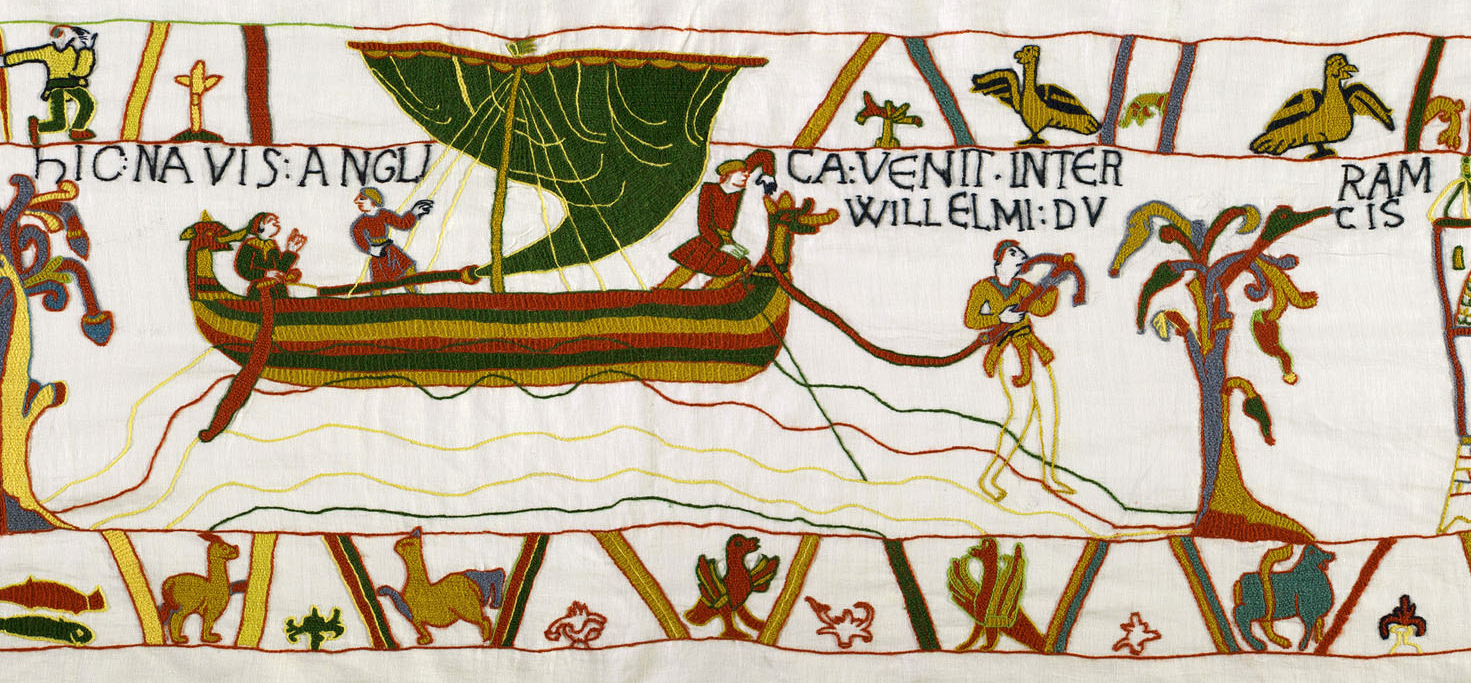 hIC:NAVIS:ANGLI
CA:VENIT·INTER
WILLELMI:DV
RAM
CIS